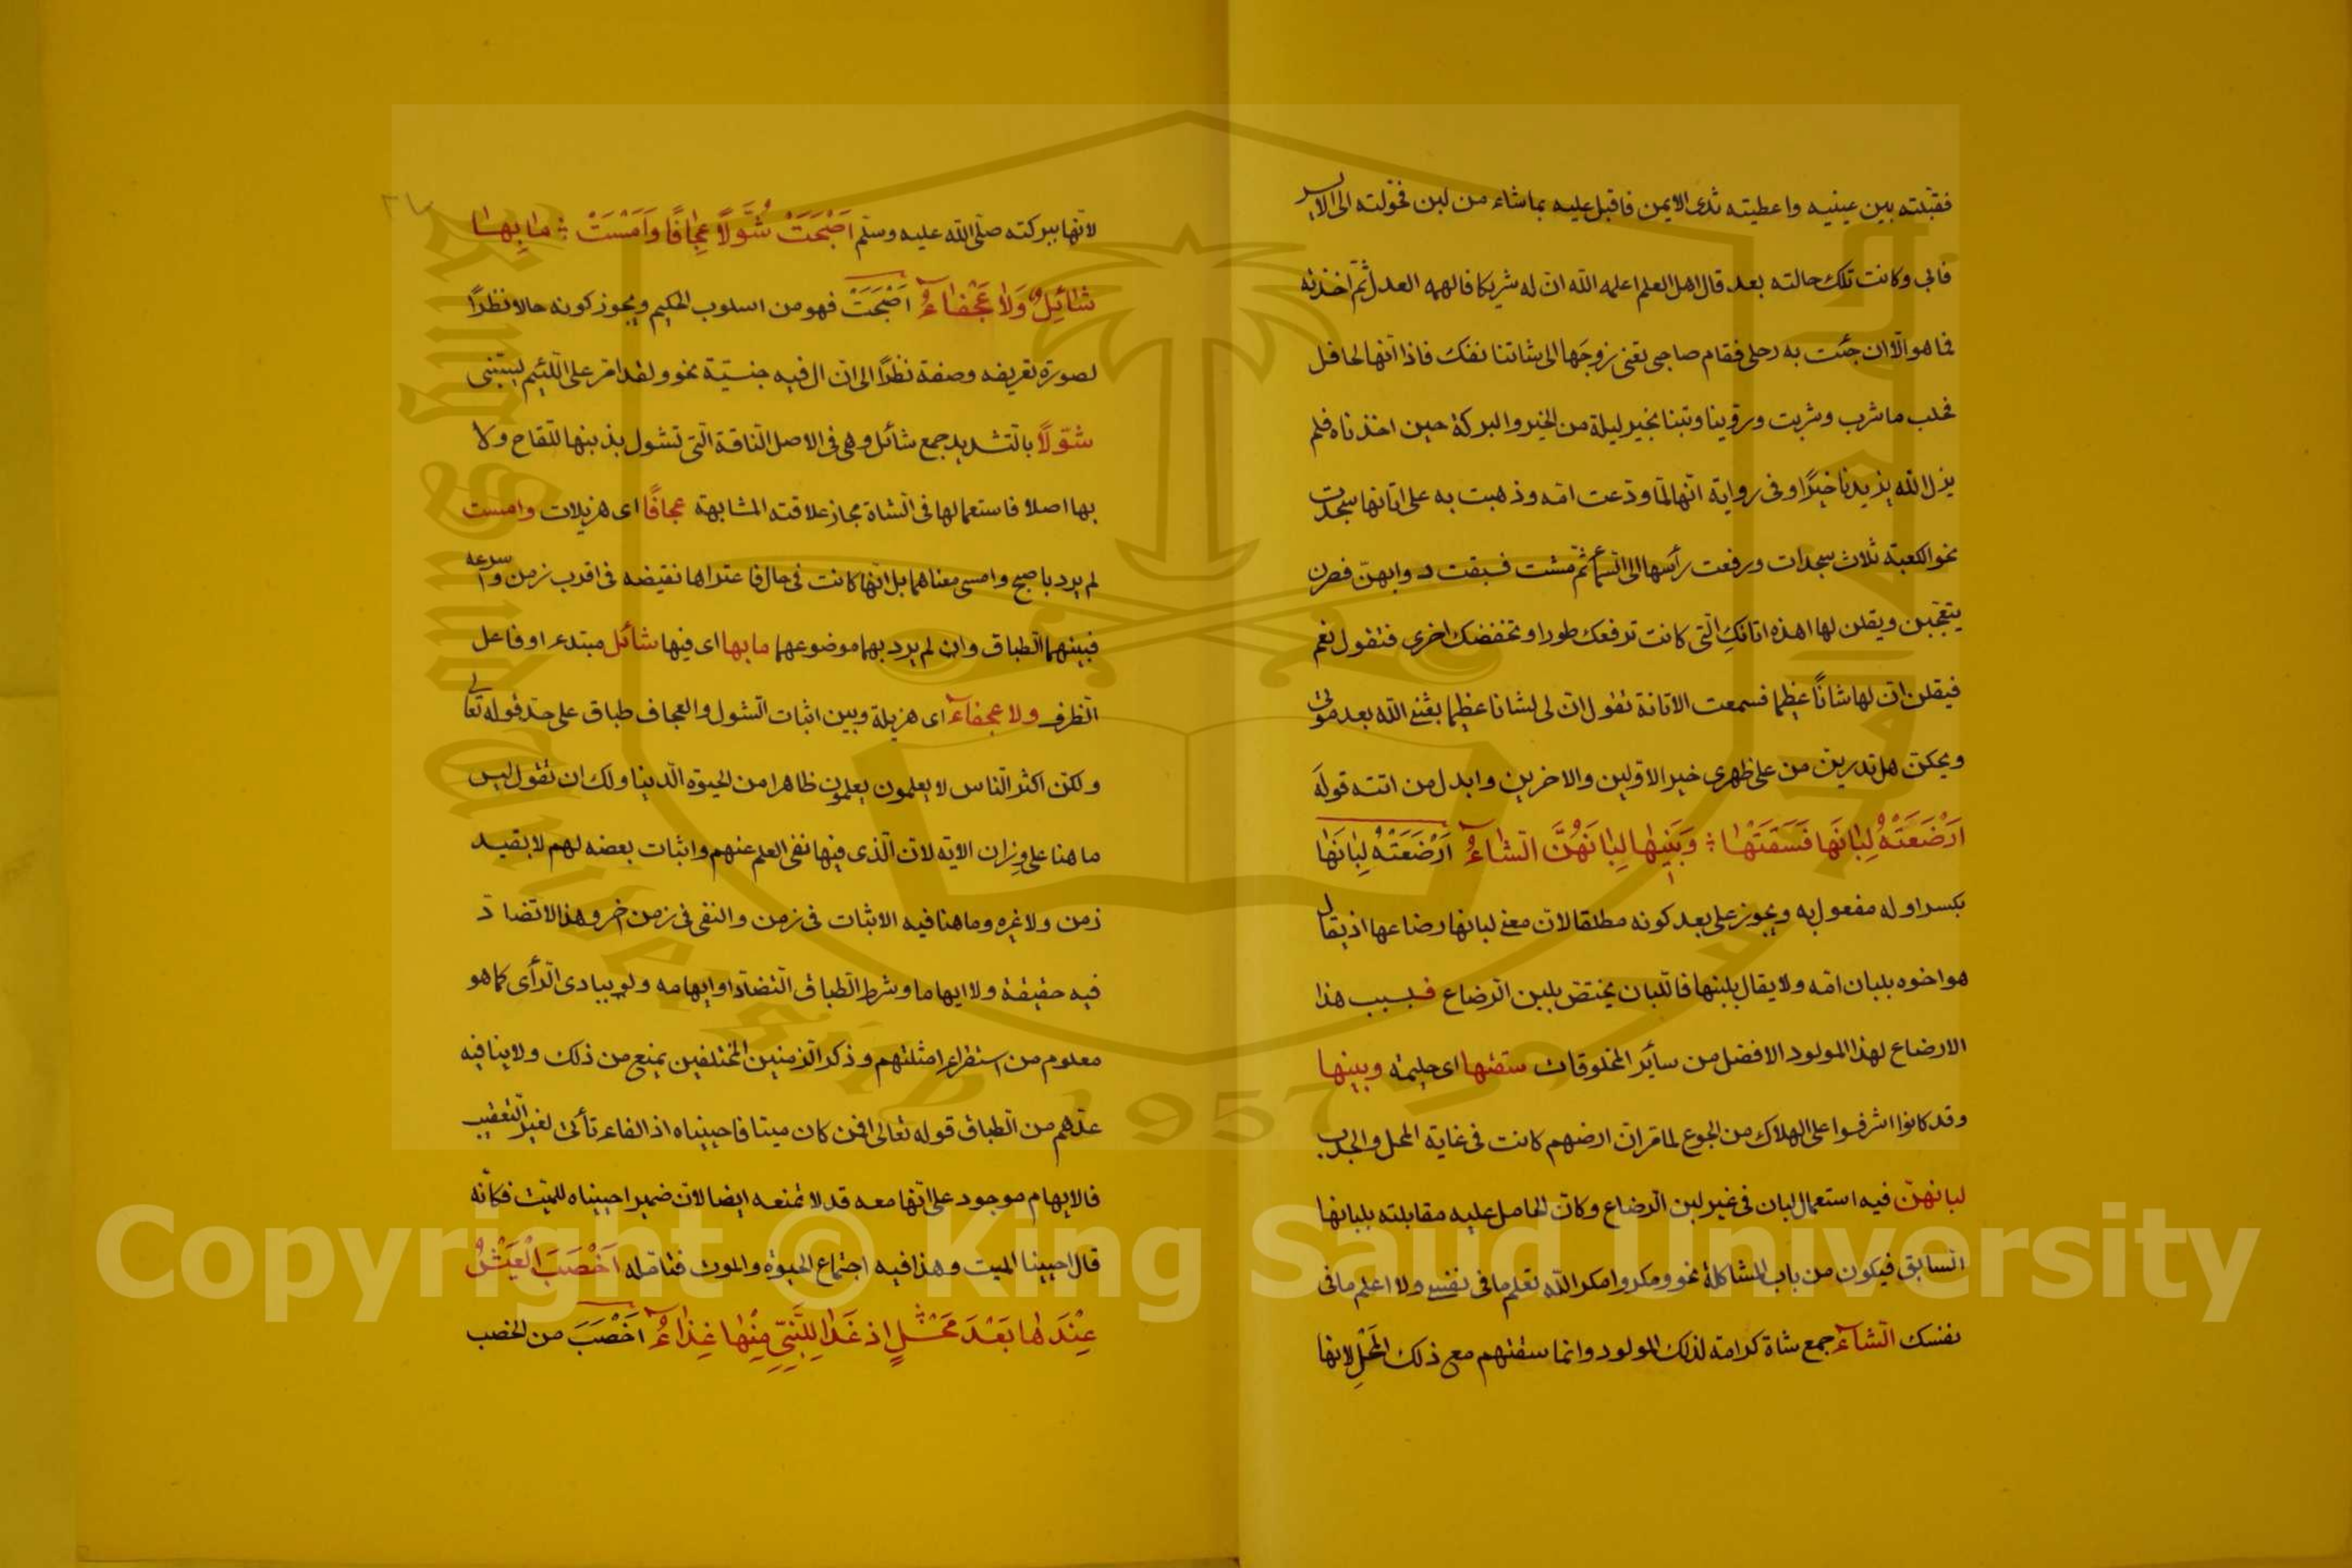 فقبلته بين عينيه واعطيته ثدى الايمن فاقبل عليه بماشاء من لبن فحولته الى الايسر
فابى وكانت تلك حالته بعد قال اهل العلم اعلمه الله ان له شريكا فالهمه العدل ثم اخذته
فما هو الا ان جئت به رحلى فقام صاحبى تعنى زوجها الى شاتنا تلك فاذا انها لحافل
فحلب ما شرب وشربت وروينا وبتنا بخير ليلة من الخير والبركة حين اخذناه فلم
يزل الله يزيدنا خيرًا وفى رواية انها لما ودعت امه وذهبت به على اتانها سجدت
نحو الكعبة ثلاث سجدات ورفعت رأسها الى السمآء ثم مشت فسبقت دوابهن فصرن
يتعجبن ويقلن لها اهذه اتانكِ التى كانت ترفعك طورا وتخفضك اخرى فتقول نعم
فيقلن ان لها شانًا عظيما فسمعت الاتانة تقول ان لى لشانا عظيما بعثنى الله بعد موتى
ويحكن هل تدرين من على ظهرى خير الاولين والاخرين وابدل من اتته قولَه
اَرْضَعَتْهُ لِبَانَهَا فَسَقَتْهَا ؞ وَبَنِيهَا لِبَانَهُنَّ الشَاءُ اَرْضَعَتْهُ لِبَانَهَا
بكسر اوله مفعول به ويجوز على بعد كونه مطلقا لان معنى لبانها رضاعها اذ يقال
هو اخوه بلبان امه ولا يقال بلبنها فاللبان يختص بلبن الرضاع فبسبب هذا
الارضاع لهذا المولود الافضل من سائر المخلوقات سقتها اى حليمة وبنيها
وقد كانوا اشرفوا على الهلاك من الجوع لما مر ان ارضهم كانت فى غاية المحل والجدب
لبانهن فيه استعمال لبان فى غير لبن الرضاع وكان الحامل عليه مقابلته بلبانها
السابق فيكون من باب المشاكلة نحو ومكروا مكر الله تعلم ما فى نفسى ولا اعلم ما فى
نفسك الشاء جمع شاة كرامة لذلك المولود وانما سقتهم مع ذلك المَحْلِ لانها
لانها ببركته صلى الله عليه وسلم اَصْبَحَتْ شُوَّلاً عِجَافًا وَاَمْسَتْ ؞ مَا بِهَا
شَائِلٌ وَلَا عَجْفَاءُ اَصْبَحَتْ فهو من اسلوب الحكيم ويجوز كونه حالا نظرًا
لصورة تعريفه وصفة نظرًا الى ان ال فيه جنسيّة نحو ولقد امر على اللئيم يسبنى
شوّلاً بالتشديد جمع شائل وهى فى الاصل الناقة التى تشول بذنبها للقاح ولا
بها اصلا فاستعمالها فى الشاة مجاز علاقته المشابهة عجافًا اى هزيلات وامست
لم يرد باصبح وامسى معناهما بل انها كانت فى حال فاعتراها نقيضه فى اقرب زمن واسرعه
فبينهما الطباق وان لم يرد بهما موضوعهما ما بها اى فيها شائل مبتدء او فاعل
الظرف ولا عجفاء اى هزيلة وبين اثبات الشول والعجاف طباق على حد قوله تعالى
ولكن اكثر الناس لا يعلمون يعلمون ظاهرا من الحيوة الدنيا ولك ان تقول ليس
ما هنا على وزان الاية لان الذى فيها نفى العلم عنهم واثبات بعضه لهم لا بقيد
زمن ولا غيره وما هنا فيه الاثبات فى زمن والنفى فى زمن اخر وهذا لا تضاد
فيه حقيقة ولا ايهاما وشرط الطباق التضاد او ايهامه ولو ببادى الرأى كما هو
معلوم من استقراء امثلتهم وذكر الزمنين المختلفين يمنع من ذلك ولا ينافيه
عدهم من الطباق قوله تعالى افمن كان ميتا فاحييناه اذ الفاء تأتى لغير التعقيب
فالايهام موجود على انها معه قد لا تمنعه ايضا لان ضمير احييناه للميت فكانه
قال احيينا الميت وهذا فيه اجتماع الحيوة والموت فتامله اَخْصَبَ الْعَيْشُ
عِنْدَهَا بَعْدَ مَحْلٍ اِذ غَدَا لِلنَّبِىِّ مِنْهَا غِذَاءُ اَخْصَبَ من الخصب
Copyright © King Saud University
King Saud University
1957